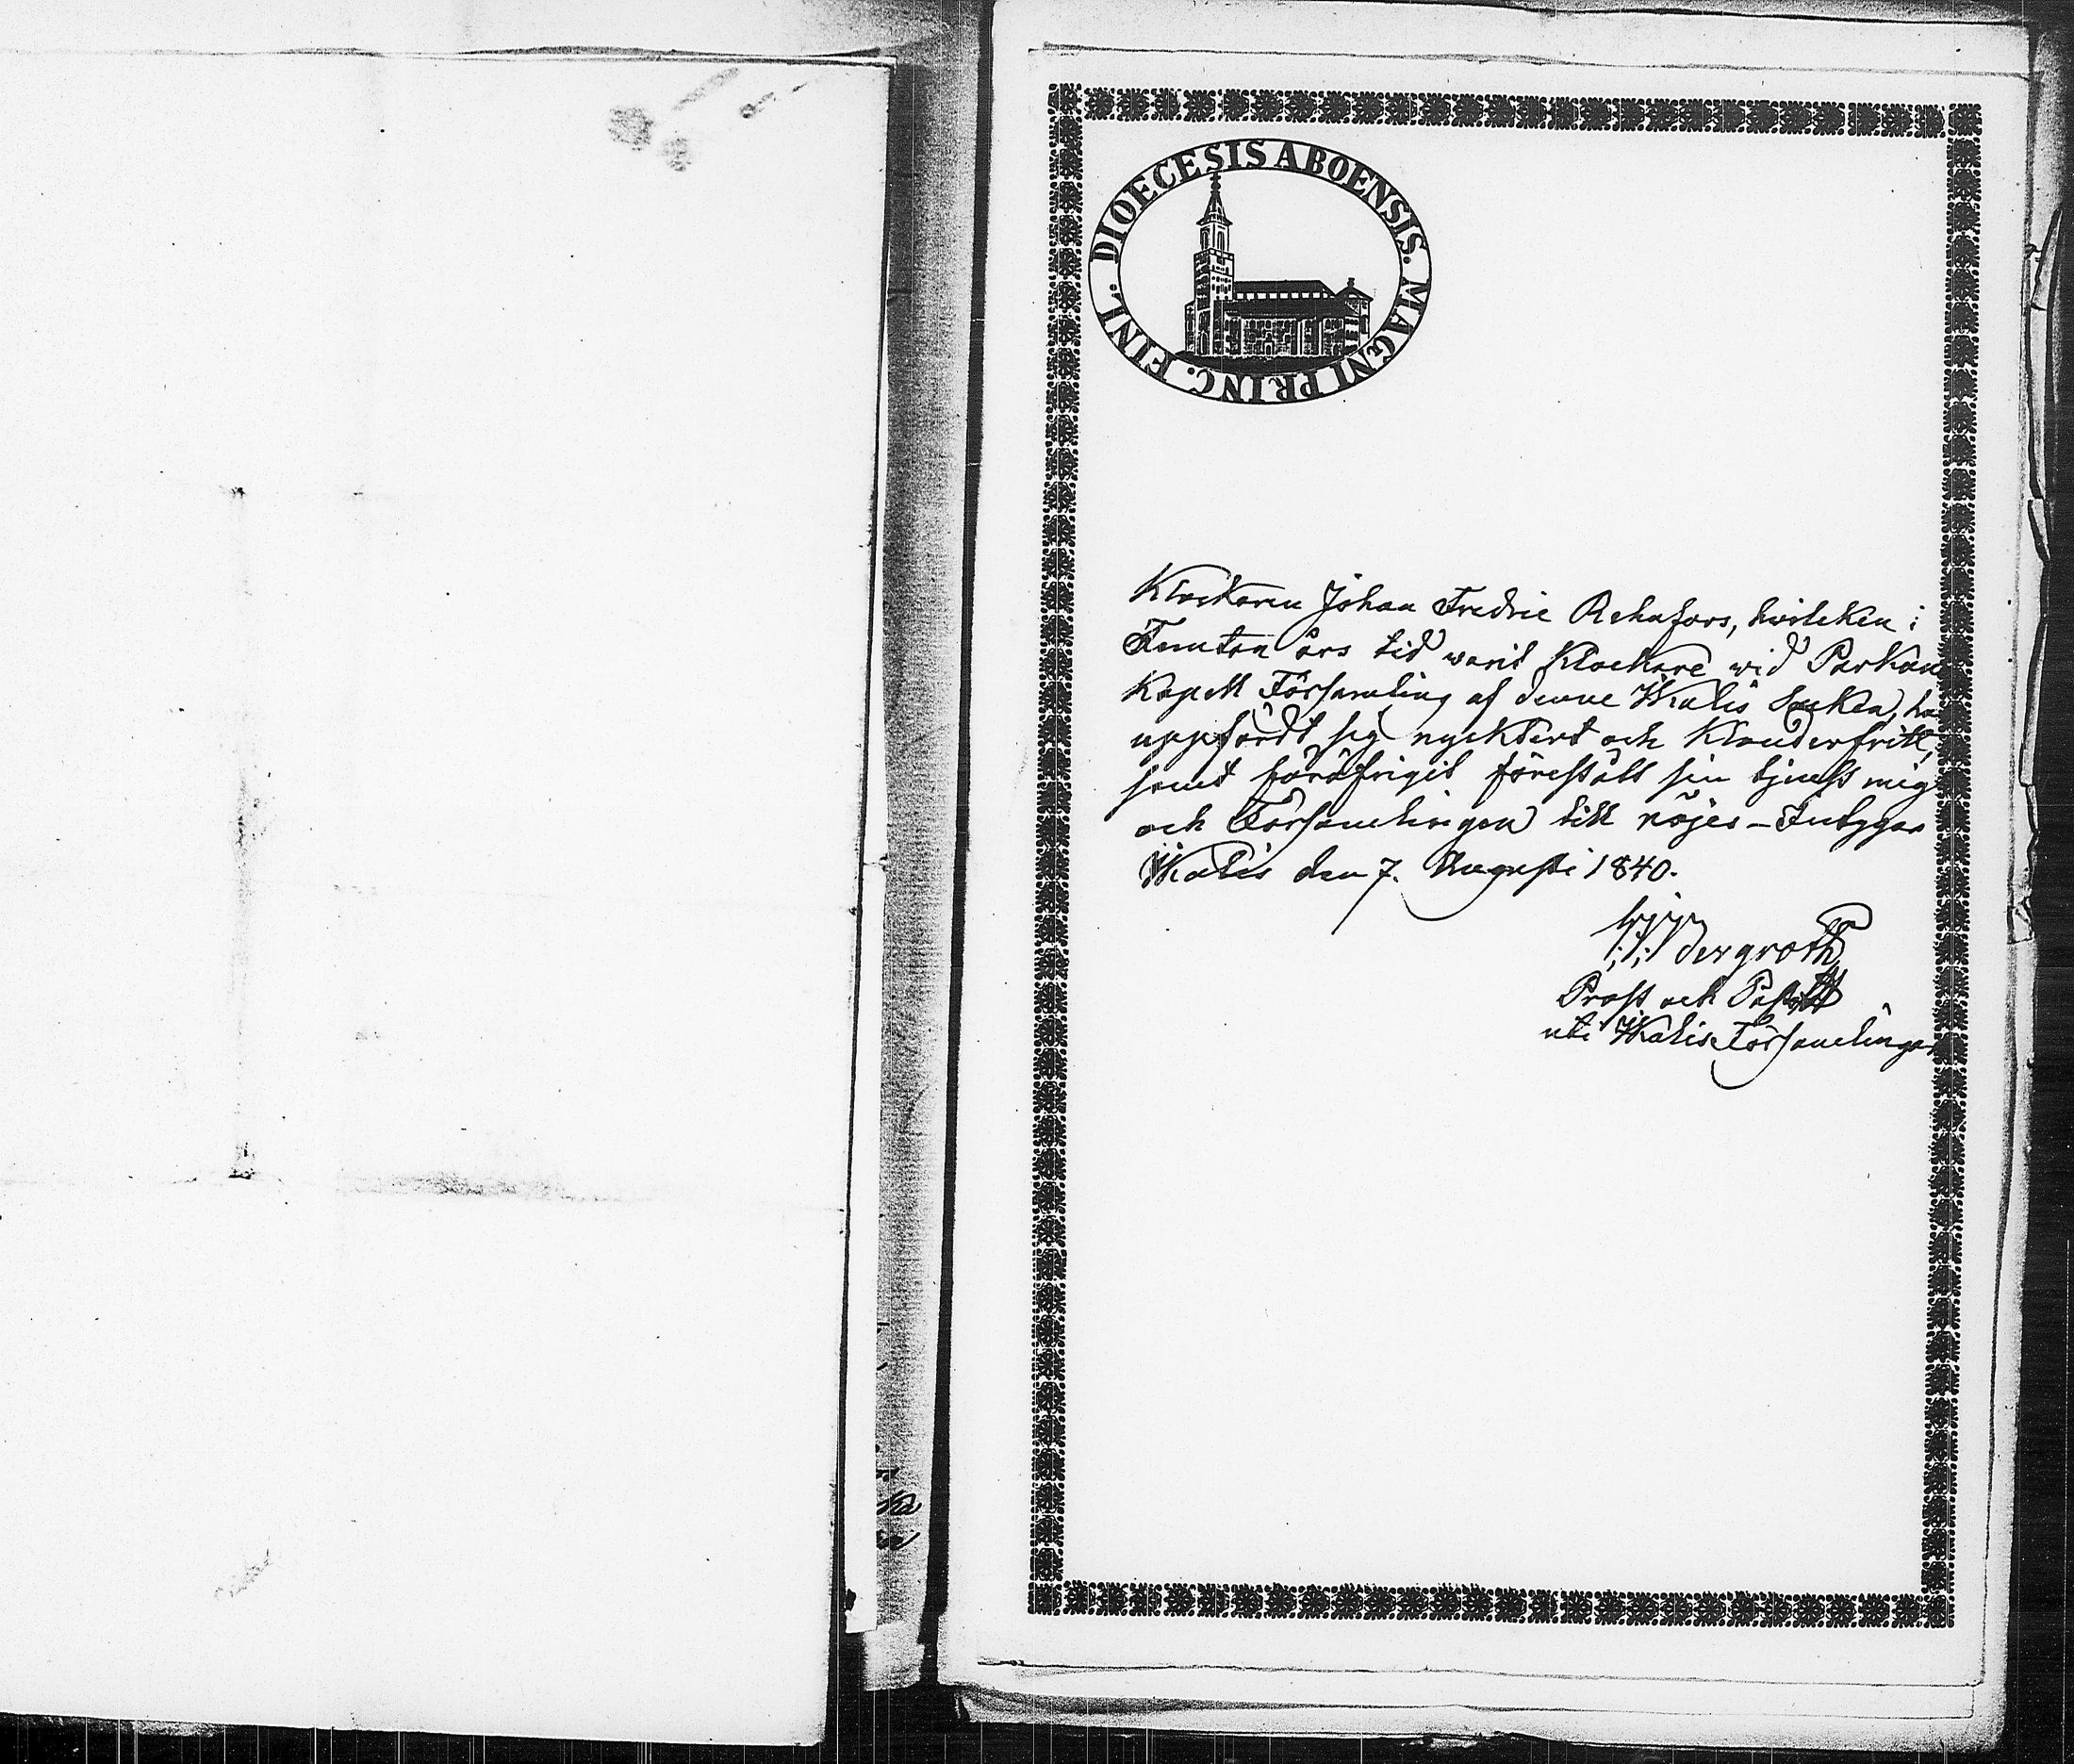 DIOECESIS ABOENSIS. MAGNI PRINC. FINL.
Klockaren Johan Fredric Rehnfors, hwilcken i
Femton års tid warit Klockare wid Parkano
Kapell Församling af denne Ikalis Socken, har
uppfördt sig nycktert och klanderfritt,
samt föröfrigit förestått sin tjenst mig
och Församlingen till nöjes – Intygar
Ikalis den 7. Augusti 1840.
Bergroth
Prost och Pastor
uti Ikalis Församlingar